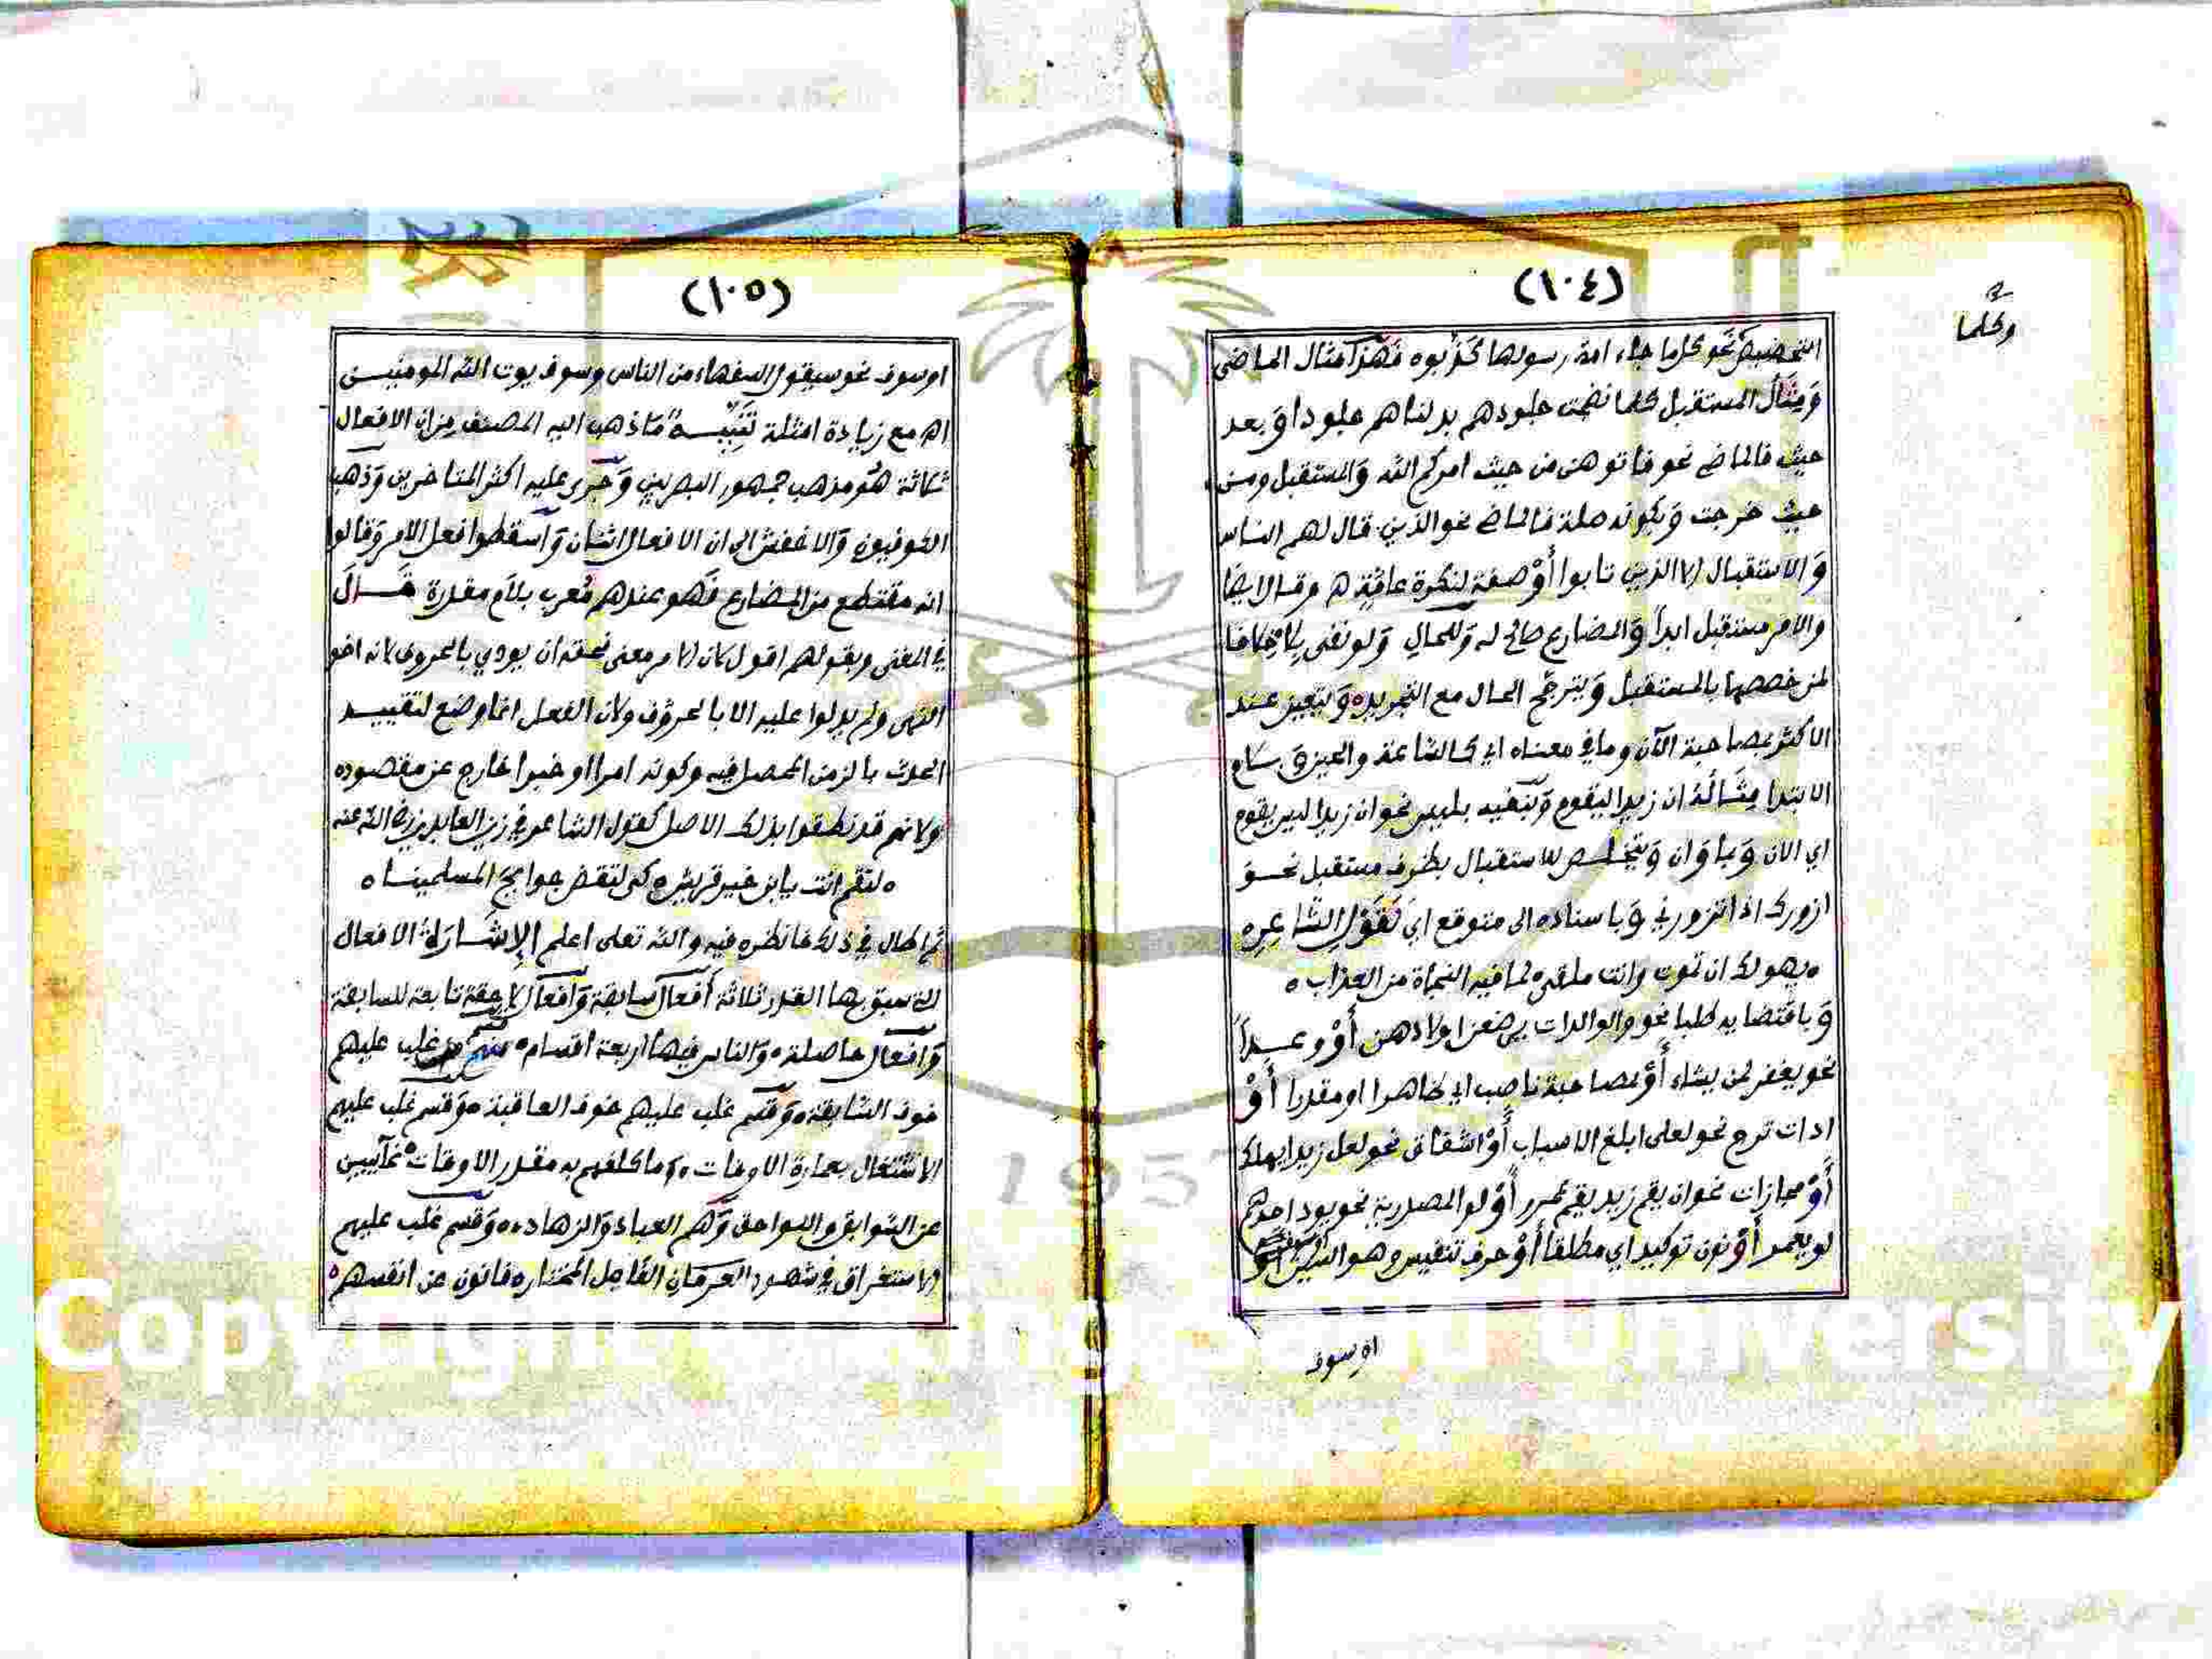 (١٠٤)
وكلما
التحضيض نحو كل ما جاء امة رسولها كذبوه فهذا مثال الماضي
ومثال المستقبل كلما نضجت جلودهم بدلناهم جلودا وبعد
حيث فالماضي نحو فاتوهن من حيث امركم الله والمستقبل ومن
حيث خرجت وبكونه صلة فالماضي نحو الذين قال لهم الناس
والاستقبال الا الذين تابوا أو صفة لنكرة عامة اه وقال ايضا
والامر مستقبل ابدا والمضارع صالح له وللحال ولو نفي بلا خلافا
لمن خصصها بالمستقبل ويترجح الحال مع التجريد ويتعين عند
الاكثر بمصاحبة الآن وما في معناه اي كالساعة والحين و بلام
الابتدا مثاله ان زيدا ليقوم وبنفيه بليس نحو ان زيدا ليس يقوم
اي الان وبما وان ويتخلص للاستقبال بظرف مستقبل نحو
ازورك اذا تزورني وباسناده الى متوقع اي كقول الشاعر ه
ه يهولك ان تموت وانت ملقى ه لما فيه النجاة من العذاب ه
وباقتضايه طلبا نحو والوالدات يرضعن اولادهن أو وعدا
نحو يغفر لمن يشاء أو بمصاحبة ناصب اي ظاهرا او مقدرا أو
ادات ترج نحو لعلي ابلغ الاسباب أو اشفاق نحو لعل زيدا يهلك
أو مجازات نحو ان يقم زيد يقم عمرو أو لو المصدرية نحو يود احدهم
لو يعمر أو نون توكيد اي مطلقا أو حرف تنفيس وهو السين
اوسوف
(١٠٥)
اوسوف نحو سيقول السفهاء من الناس وسوف يوت الله المومنين
اه مع زيادة امثلة تنبيه ما ذهب اليه المصنف من ان الافعال
ثلاثة هو مذهب جمهور البصريين وجرى عليه اكثر المتاخرين وذهب
الكوفيون والاخفش الى ان الافعال اثنان واسقطوا فعل الامر وقالوا
انه مقتطع من المضارع فهو عندهم معرب بلام مقدرة قال
في المغني وبقولهم اقول لان الامر معنى فحقه ان يودي بالحروف لانه اخو
النهي ولم يدلوا عليه الا بالحروف ولان الفعل انما وضع لتقييد
الحدث بالزمن المحصل فيه وكونه امرا او خبرا خارج عن مقصوده
ولانهم قد نطقوا بذلك الاصل كقول الشاعر في زين العابدين رضي الله عنه
ه لتقم انت يا ابن خير قريش ه كي لتقض حوايج المسلمينا ه
ثم اطال في ذلك فانظره فيه والله تعلى اعلم الإشارة الافعال
التي سبق بها القدر ثلاثة أفعال سابقة وافعال لاحقة تابعة للسابقة
وافعال حاصلة ه والناس فيها اربعة اقسام ه قسم غلب عليهم
خوف السابقة ه وقسم غلب عليهم خوف العاقبة ه وقسم غلب عليهم
الاشتغال بعمارة الاوقات ه وما كلفهم به مقدر الاوقات ه غآئبين
عن السوابق واللواحق وهم العباد والزهاد ه وقسم غلب عليهم
الاستغراق في شهود العرفان الفاعل المختار ه فانون عن انفسهم ه
Copyright © King Saud University
1957